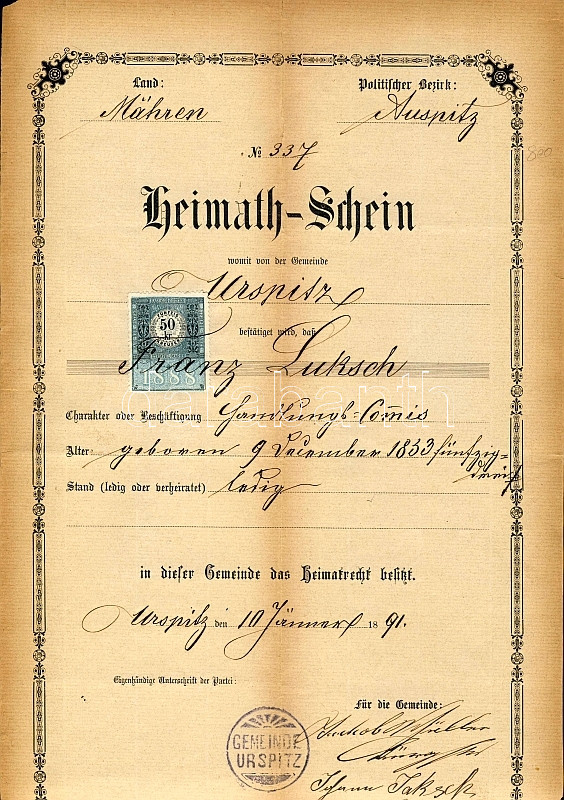 Land: Politischer Bezirk:
Mähren Auspitz
№ 337
Heimath-Schein
womit von der Gemeinde
Urspitz
50
bestätiget wird, daß
Franz Luksch
1888
darabanth
Charakter oder Beschäftigung Handlungs-Comis
Alter geboren 9 December 1853 fünfzig-
drei
Stand (ledig oder verheiratet) ledig
in dieser Gemeinde das Heimatrecht besitzt.
Urspitz den 10 Jänner 1891.
Eigenhändige Unterschrift der Partei:
Für die Gemeinde:
Jakob Müller
GEMEINDE
URSPITZ
Johann